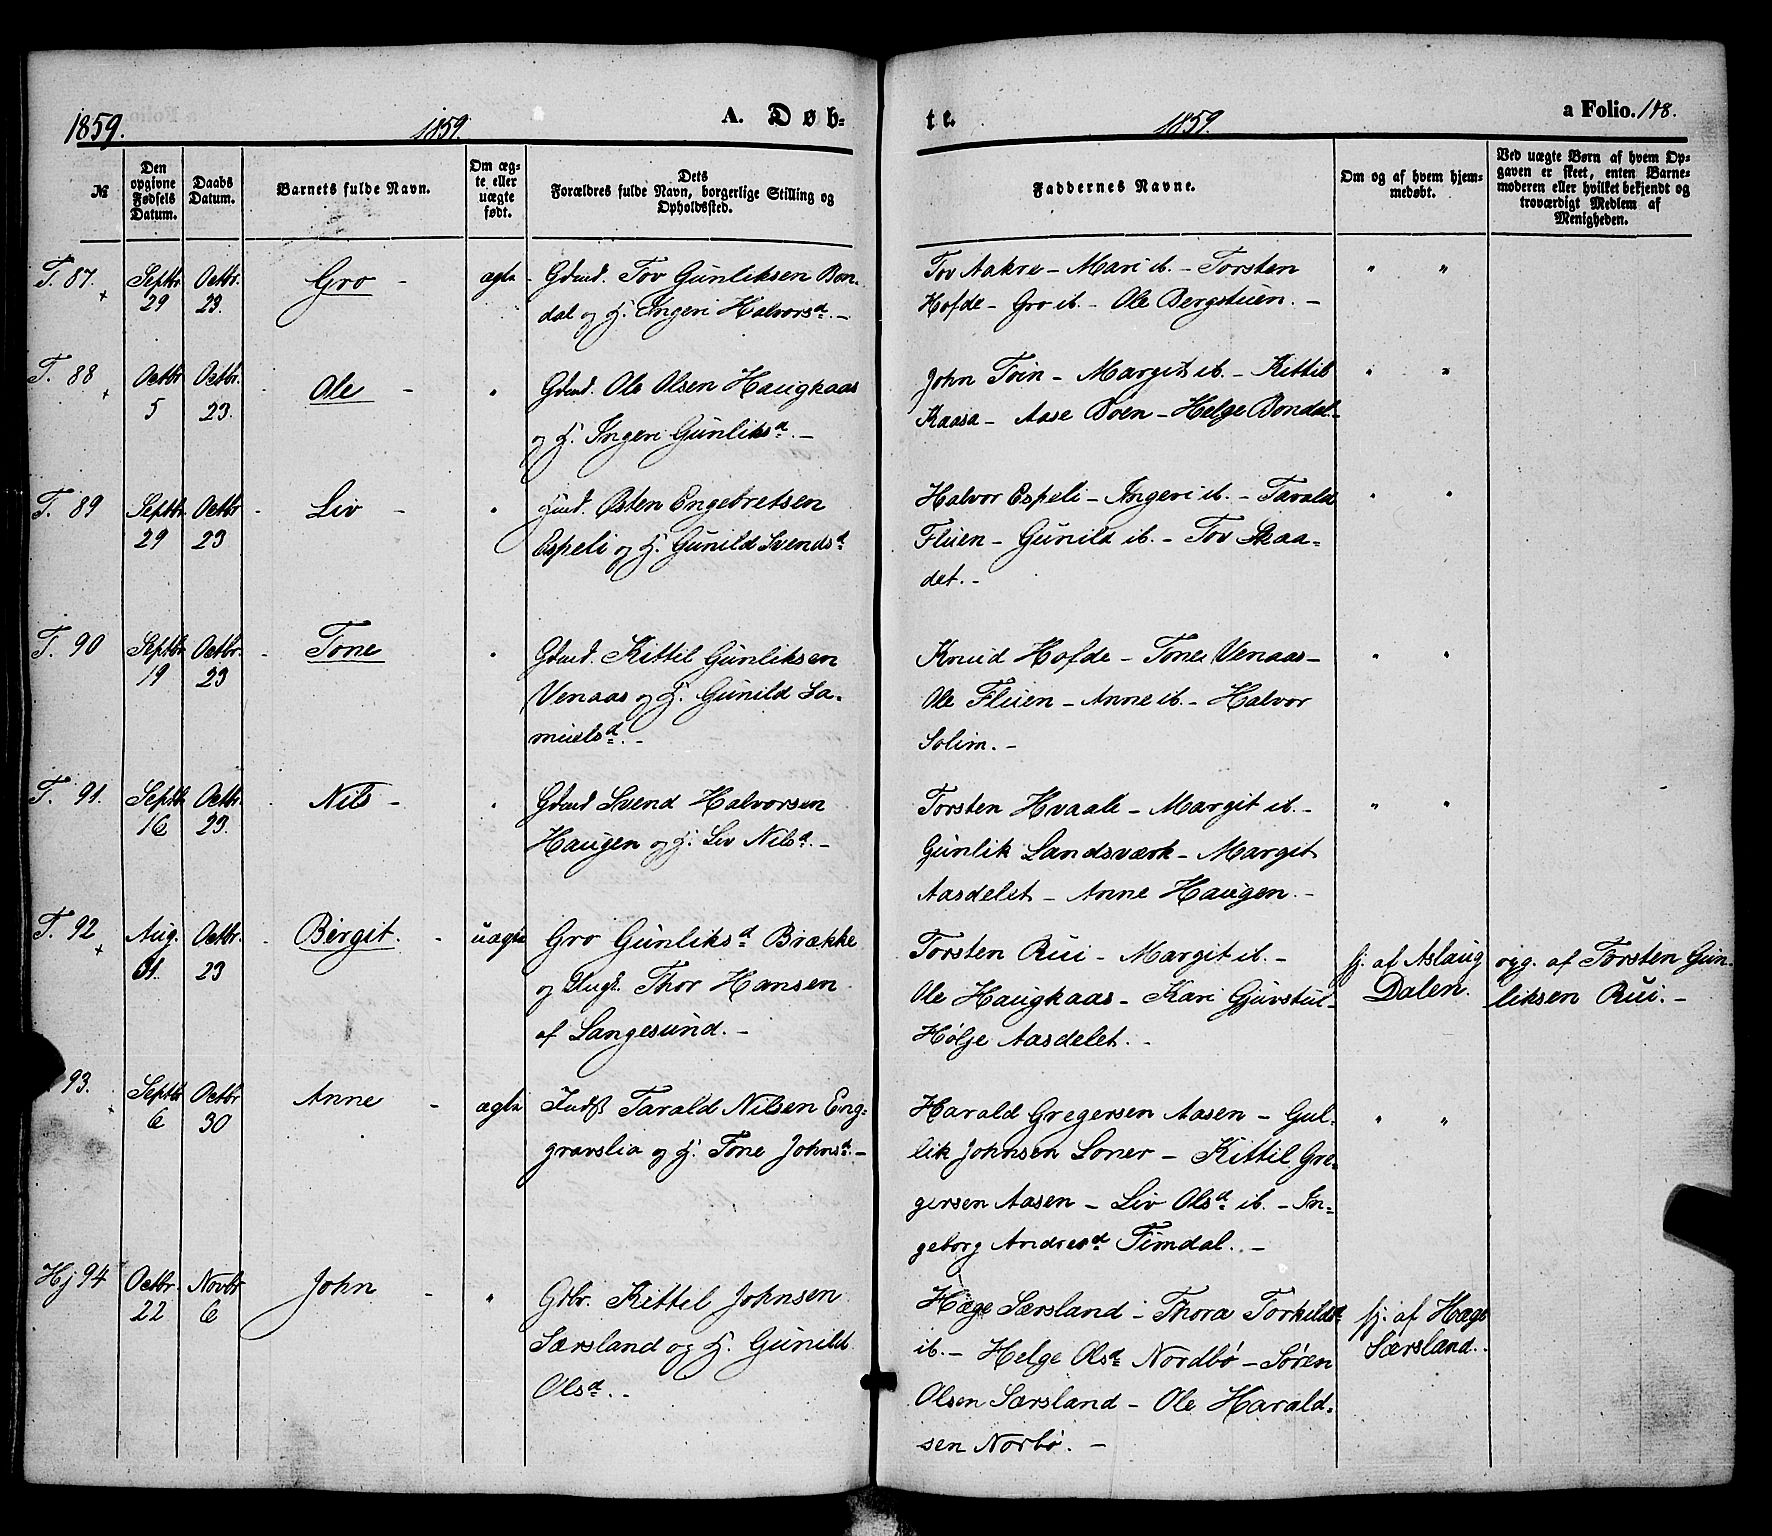 1859. 1859. A. Døb- te. 1859. a Folio. 148.
№
Den opgivne Fødsels Datum.
Daabs Datum.
Barnets fulde Navn.
Om ægte eller uægte født.
Dets Forældres fulde Navn, borgerlige Stilling og Opholdssted.
Faddernes Navne.
Om og af hvem hjemmedøbt.
Ved uægte Børn af hvem Opgaven er skeet, enten Barnemoderen eller hvilket bekjendt og troværdigt Medlem af Menigheden.
T. 87. Septbr. 29 Octbr. 23. Gro - ægte
Gdmd. Tov Gunliksen Bon-
dal og H. Ingeri Halvorsd. -
Tov Aakre - Mari ib. - Torsten
Hofde - Gro ib. - Ole Bergstuen. -
" "
T. 88 Octbr 5 Octbr. 23. Ole - "
Gdmd. Ole Olsen Haugkaas
og H. Ingeri Gunliksd. -
John Tvin - Margit ib. - Kittil
Kaasa - Aase Boen - Helge Bondal -
" "
T. 89 Septbr. 29 Octbr 23 Liv - "
Hmd. Østen Engebretsen
Espeli og H. Gunild Svendsd
Halvor Espeli - Ingeri ib. - Tarald
Fluen - Gunild ib. - Tov Skaa-
det. -
" "
T. 90 Septbr. 19 Octbr. 23 Tone "
Gdmd. Kittil Gunliksen
Venaas og H. Gunild Sa-
muelsd. -
Knud Hofde - Tone Venaas -
Ole Fluen - Anne ib. - Halvor
Solim. -
" "
T. 91. Septbr. 16 Octbr. 23. Nils - "
Gdmd Svend Halvorsen
Haugen og H. Liv Nilsd. -
Torsten Hvaale - Margit ib. -
Gunlik Landsværk - Margit
Aasdelet - Anne Haugen. -
" "
T. 92 Aug. 31. Octbr. 23 Bergit. - uægte
Gro Gunliksd Brække
og Ungk. Thor Hansen
af Langesund. -
Torsten Rui - Margit ib. -
Ole Haugkaas - Kari Gjuvstul -
Hølje Aasdelet. -
hj. af Aslaug
Dalen.
opg. af Torsten Gun-
liksen Rui. -
93. Septbr 6 Octbr 30 Anne - ægte
Indst Tarald Nilsen Eng-
gravslia og H. Tone Johnsd. -
Harald Gregersen Aasen - Gul-
lik Johnsen Loner - Kittil Gre-
gersen Aasen - Liv Olsd ib. - In-
geborg Andresd Timdal. -
" "
Hj 94 Octbr. 22 Novbr 6 John - "
Gdbr. Kittel Johnsen
Særsland og H. Gunild
Olsd. -
Hæge Særsland - Thora Torkildsd
ib. - Helge Olsd Nordbø - Søren
Olsen Særsland - Ole Harald-
sen Norbø. -
hj. af Hæge
Særsland.